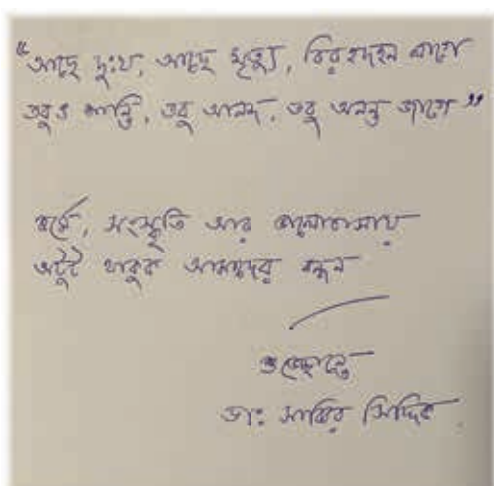 “আছে দুঃখ, আছে মৃত্যু, বিরহদহন লাগে
তবুও শান্তি, তবু আনন্দ, তবু অনন্ত জাগে”
কর্মে, সংস্কৃতি আর ভালোবাসায়
অটুট থাকুক আমাদের বন্ধন
শুভেচ্ছান্তে
ডাঃ সাব্বির সিদ্দিক